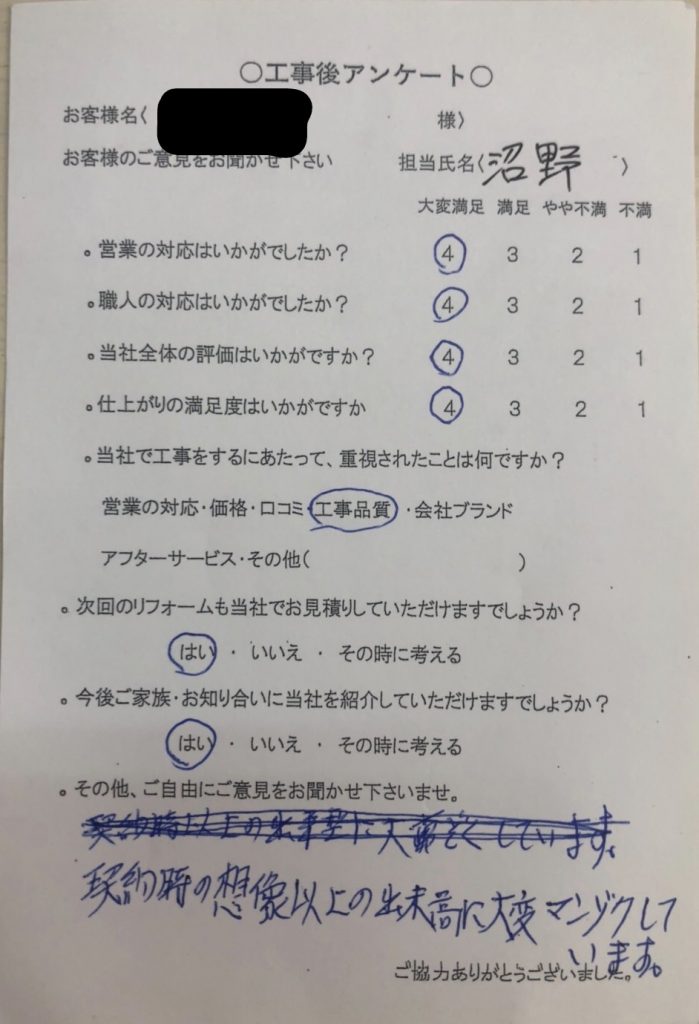 ○工事後アンケート○
お客様名〈 様〉
お客様のご意見をお聞かせ下さい 担当氏名〈沼野 〉
大変満足 満足 やや不満 不満
。営業の対応はいかがでしたか？ 4 3 2 1
。職人の対応はいかがでしたか？ 4 3 2 1
。当社全体の評価はいかがですか？ 4 3 2 1
。仕上がりの満足度はいかがですか 4 3 2 1
。当社で工事をするにあたって、重視されたことは何ですか？
営業の対応・価格・口コミ・工事品質・会社ブランド
アフターサービス・その他( )
。次回のリフォームも当社でお見積りしていただけますでしょうか？
はい ・ いいえ ・ その時に考える
。今後ご家族・お知り合いに当社を紹介していただけますでしょうか？
はい ・ いいえ ・ その時に考える
。その他、ご自由にご意見をお聞かせ下さいませ。
契約時の想像以上の出来高に大変マンゾクして
います。
ご協力ありがとうございました。